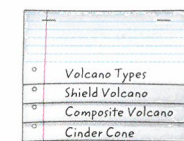 Volcano Types
Shield Volcano
Composite Volcano
Cinder Cone